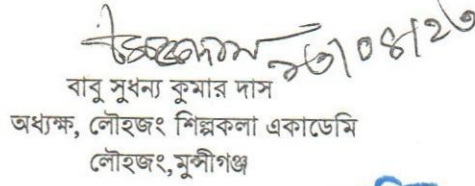 বাবু সুধন্য কুমার দাস
অধ্যক্ষ, লৌহজং শিল্পকলা একাডেমি
লৌহজং,মুন্সীগঞ্জ